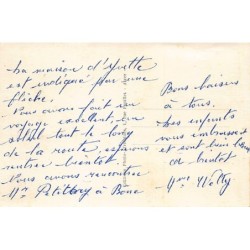 La maison d'yvette
est indiqué par une
flèche.
Nous avons fait un
voyage excellent, un
soleil tout le long
de la route, espérons
rentrer bientôt
Nous avons rencontré
Mr à Bône
Bons baisers
à tous.
Les enfants
vous embrassent
et sont bien
à bientôt